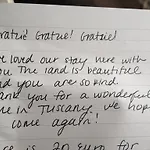 Gratzie! Gratzie! Gratzie!
We loved our stay here with
you The land is beautiful
and you are so kind
Thank you for a wonderful
time in Tuscany. We hope
come again!
is 20 euro for